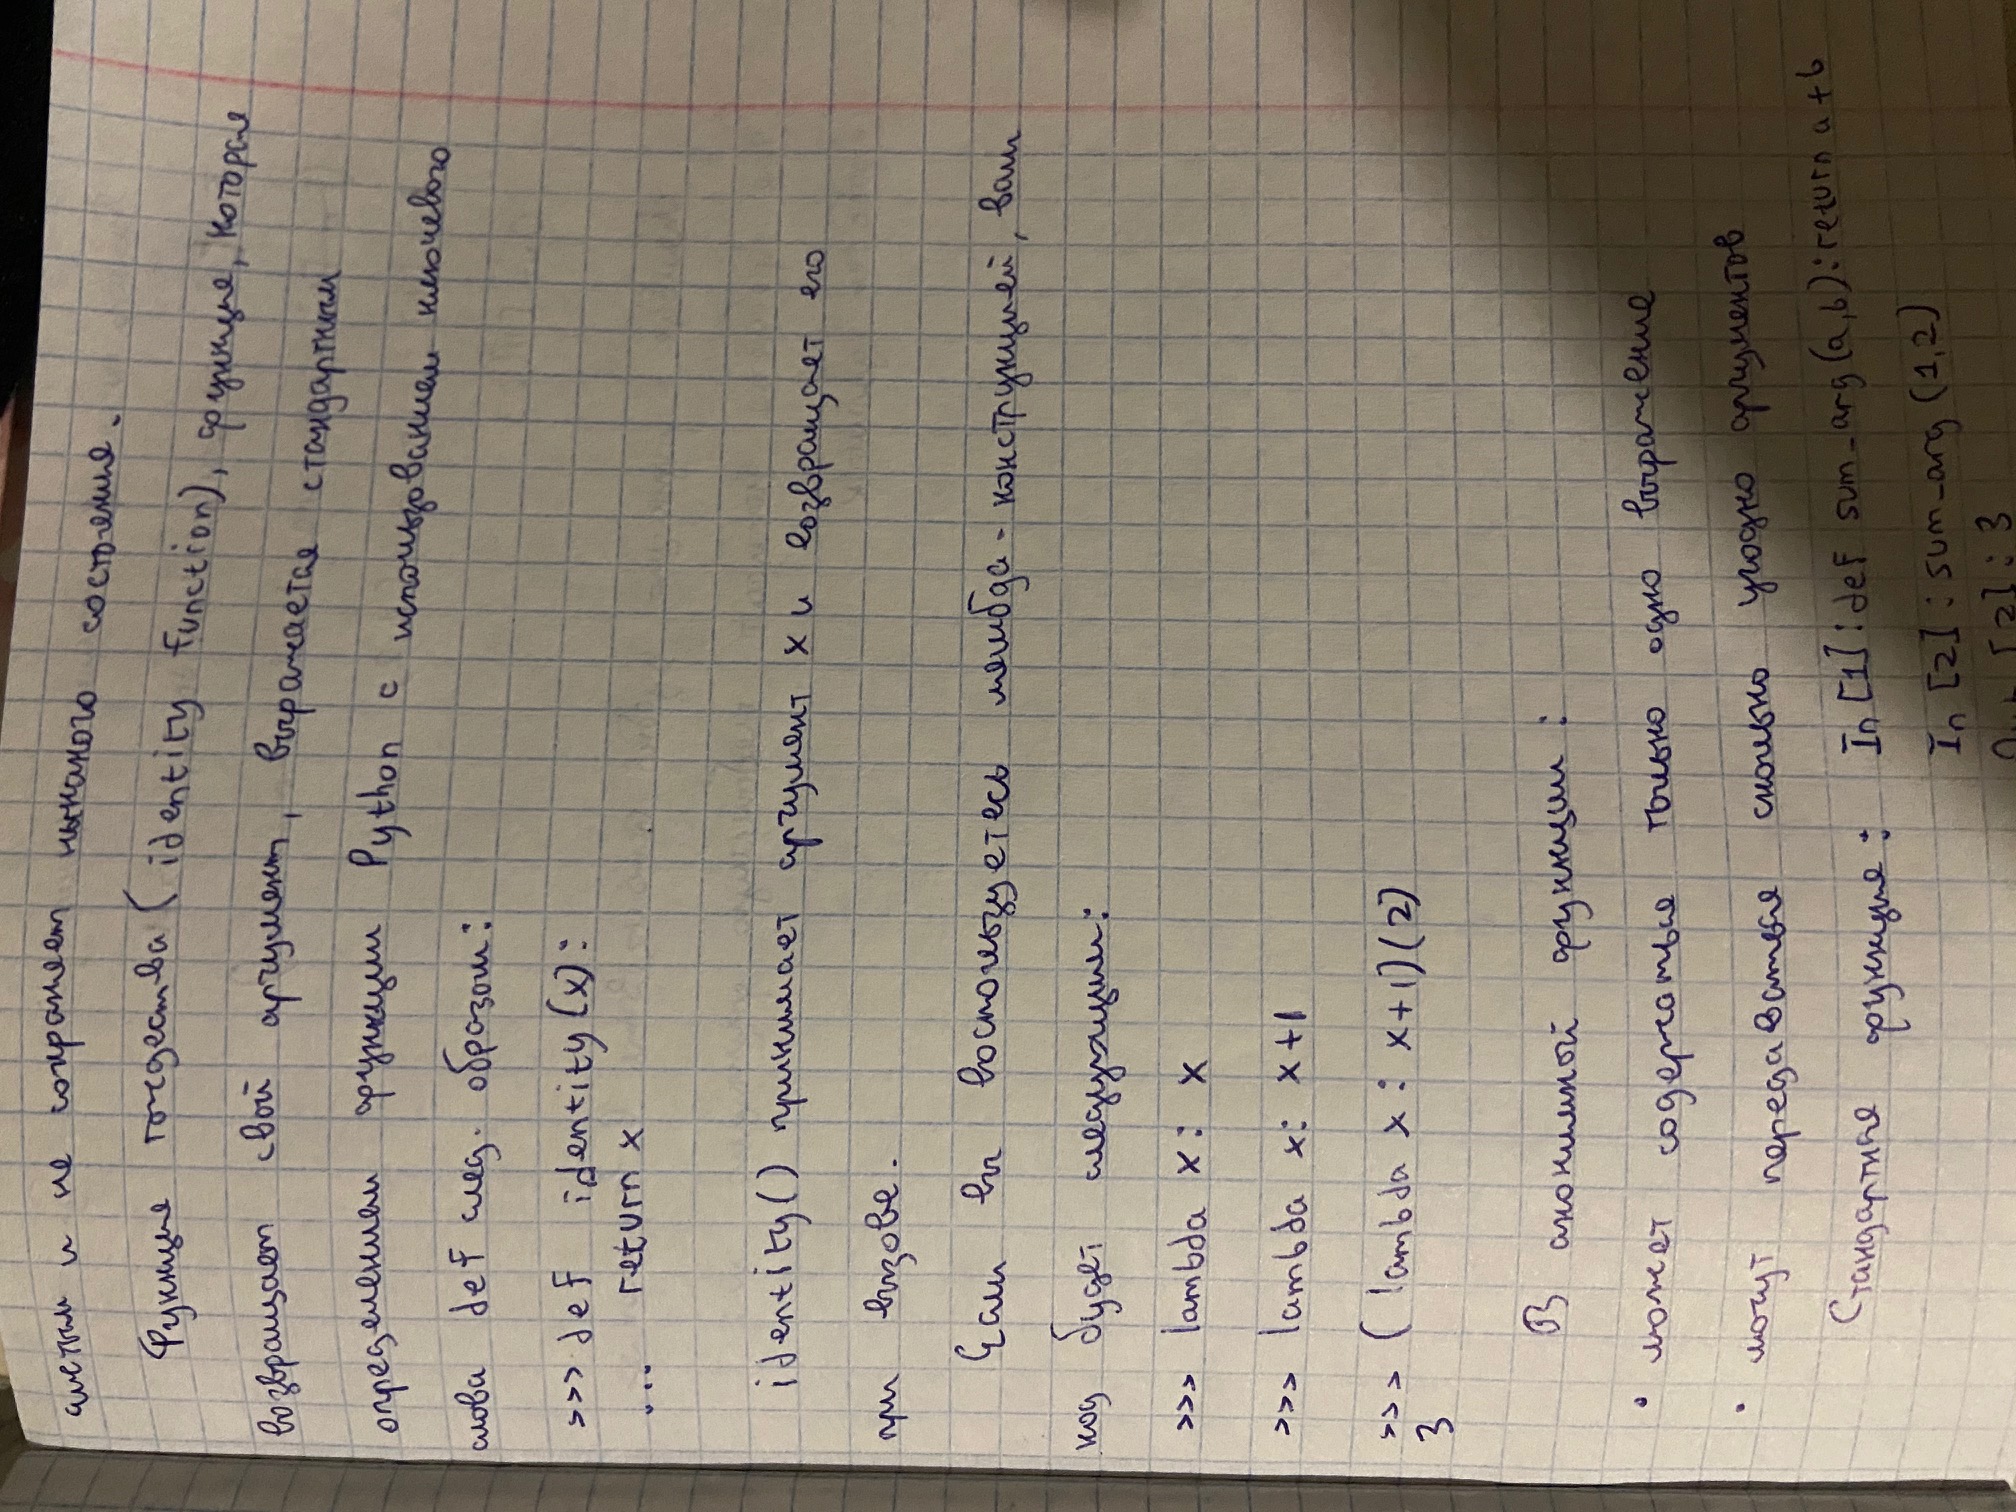 чистым и не сохраняет никакого состояния.
Функция тождества (identity function), функция, которая
возвращает свой аргумент, выражается стандартным
определением функции Python с использованием ключевого
слова def след. образом:
>>> def identity(x):
... return x
identity() принимает аргумент x и возвращает его
при вызове.
Если вы воспользуетесь лямбда-конструкцией, ваш
код будет следующим:
>>> lambda x: x
>>> lambda x: x+1
>>> (lambda x: x+1)(2)
3
В анонимной функции:
• может содержаться только одно выражение
• могут передаваться сколько угодно аргументов
Стандартная функция: In [1]: def sum_arg(a,b): return a+b
In [2]: sum_arg (1,2)
Out [2]: 3